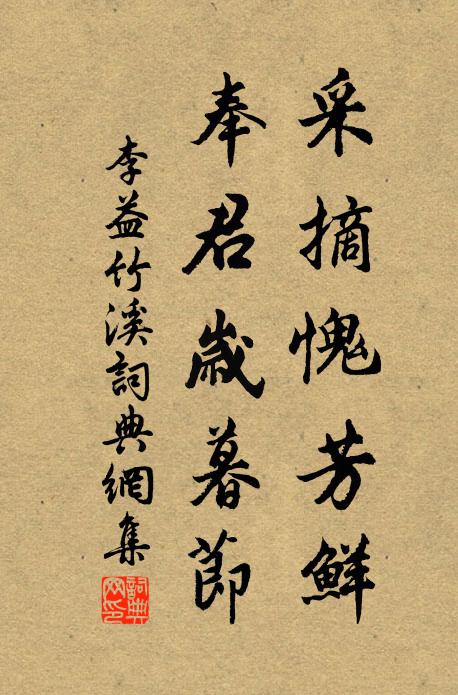 采摘愧芳鮮
奉君歲暮節
李益竹溪詞典網集
詞典網印